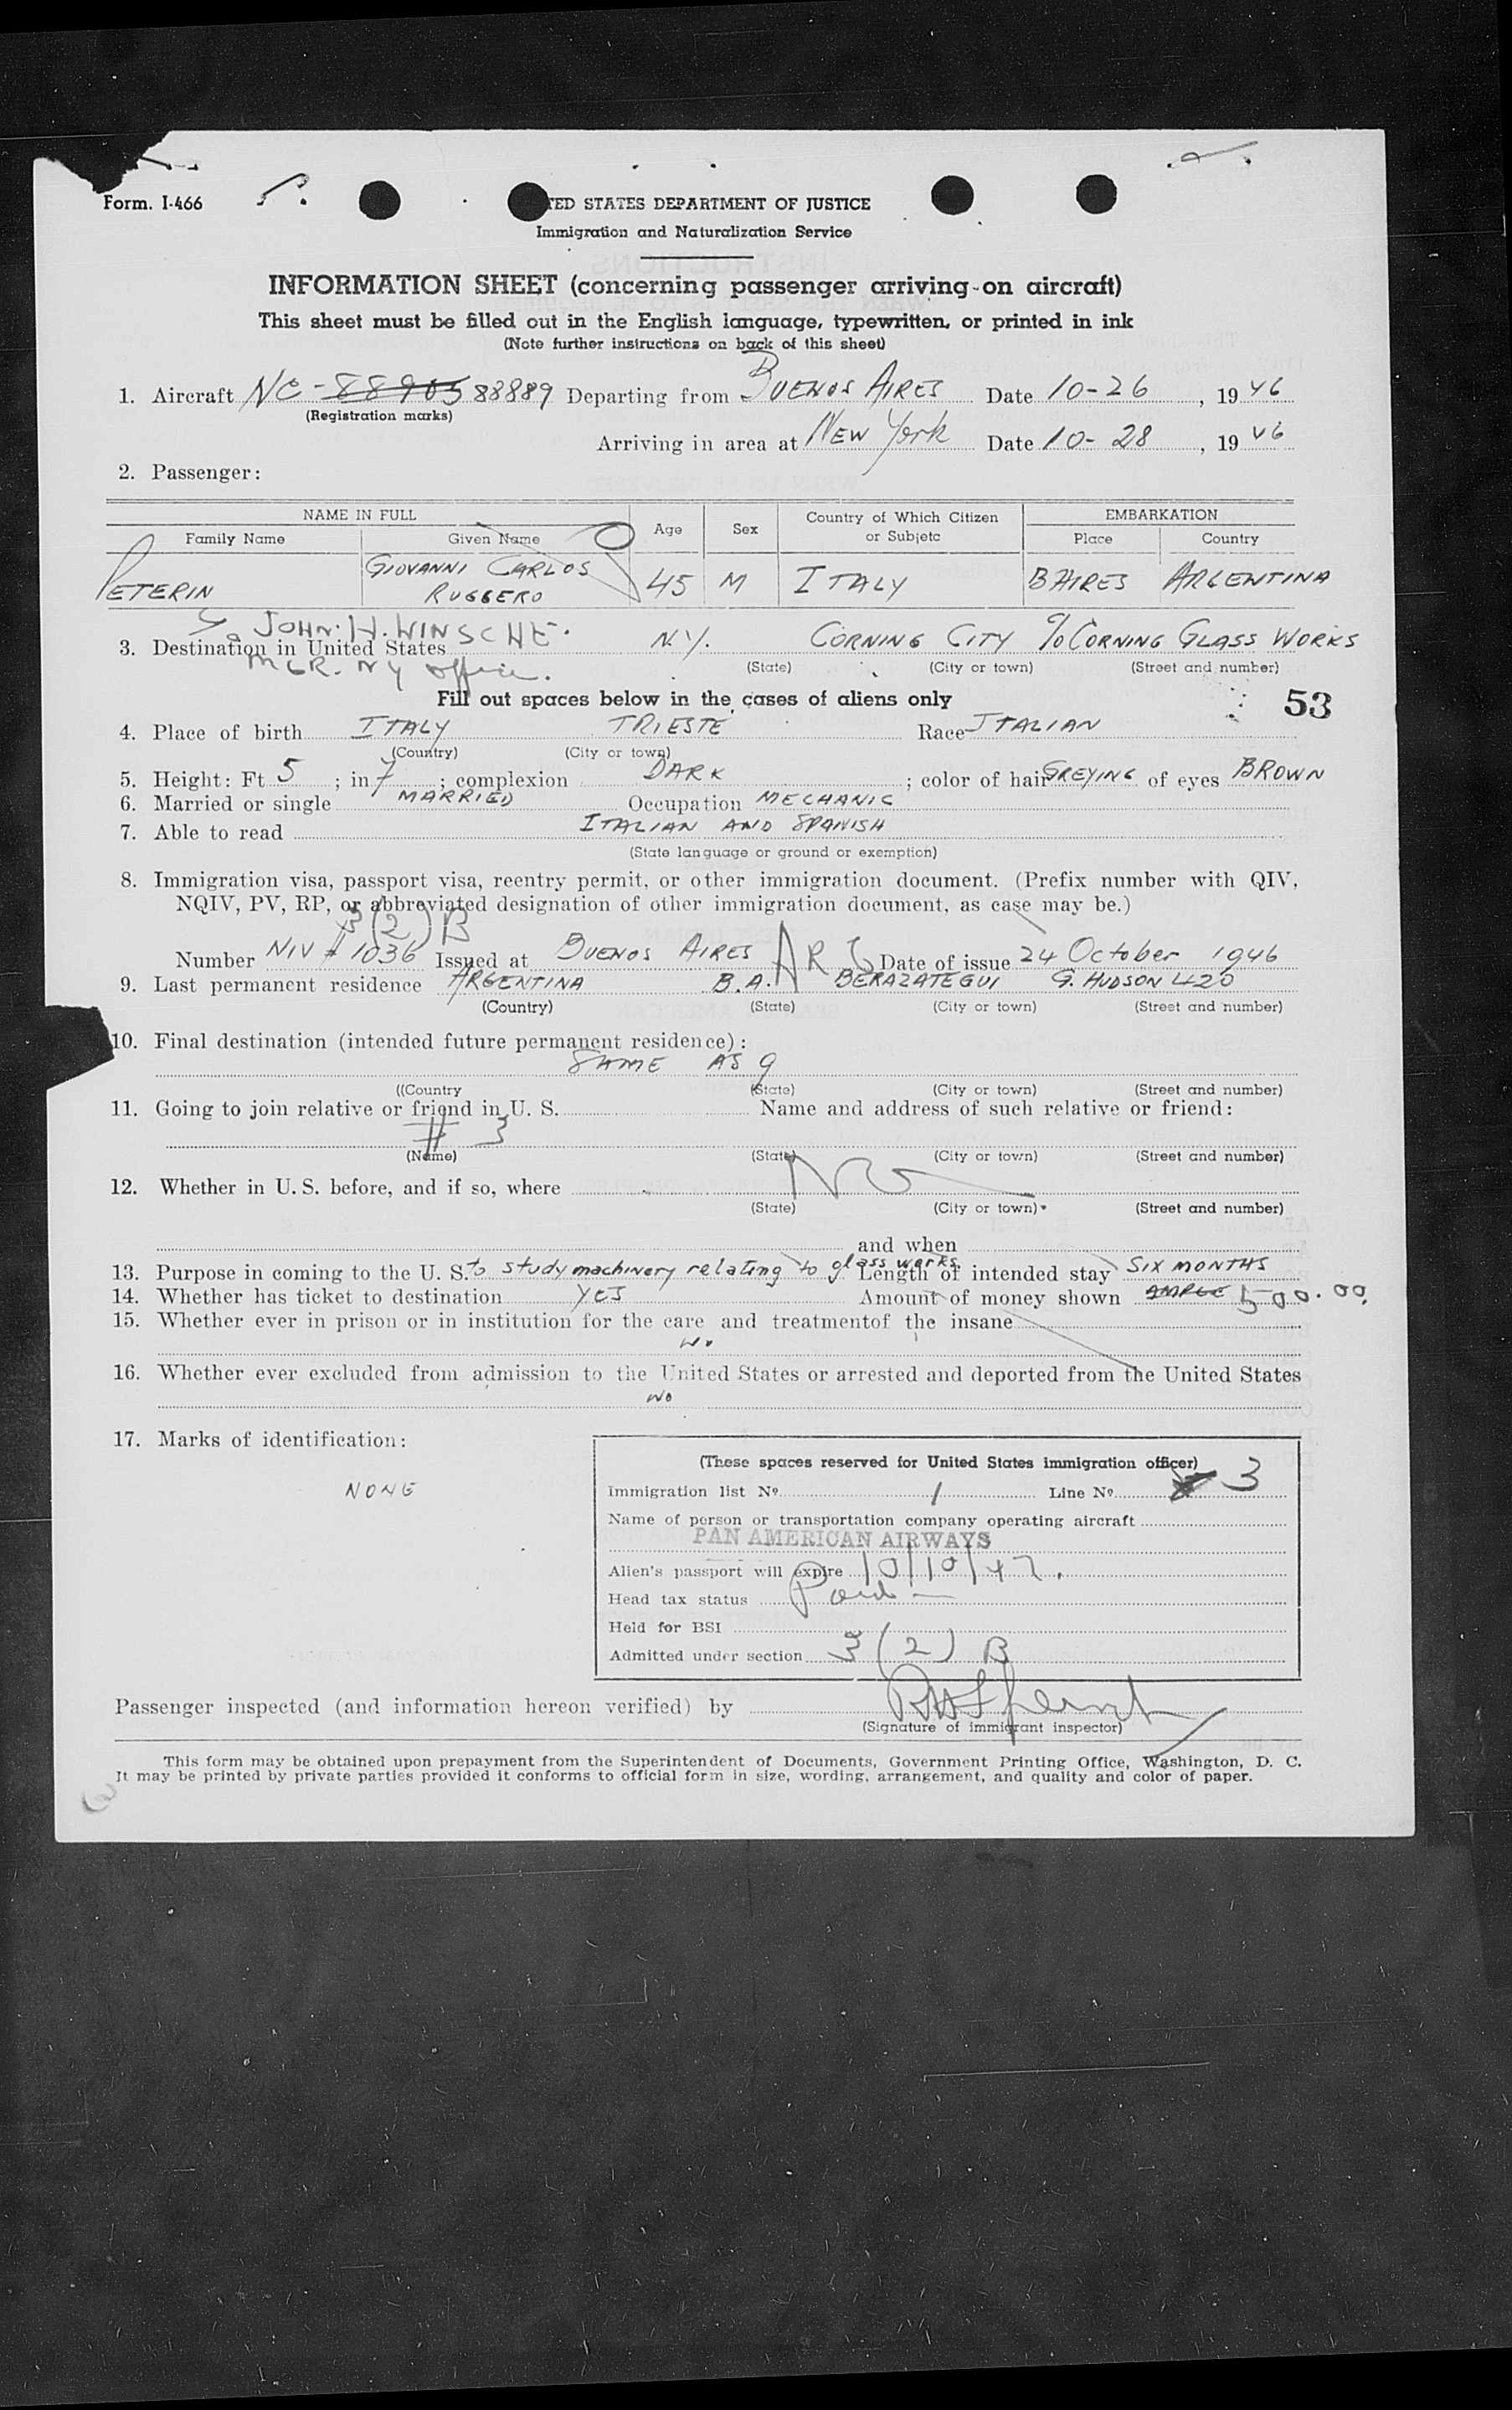 Form. I-466
TED STATES DEPARTMENT OF JUSTICE
Immigration and Naturalization Service
INFORMATION SHEET (concerning passenger arriving on aircraft)
This sheet must be filled out in the English language, typewritten, or printed in ink
(Note further instructions on back of this sheet)
1. Aircraft NC-88905 88889 Departing from BUENOS AIRES Date 10-26, 1946
(Registration marks)
Arriving in area at NEW York Date 10-28, 1946
2. Passenger:
NAME IN FULL Age Sex Country of Which Citizen or Subjetc EMBARKATION
Family Name Given Name Place Country
PETERIN GIOVANNI CARLOS RUGGERO 45 M ITALY BAIRES ARGENTINA
JOHN. H. WINSCHE.
3. Destination in United States N.Y. CORNING CITY % CORNING GLASS WORKS
MGR. NY office. (State) (City or town) (Street and number)
Fill out spaces below in the cases of aliens only 53
4. Place of birth ITALY TRIESTE Race ITALIAN
(Country) (City or town)
5. Height: Ft 5; in 7; complexion DARK; color of hair GREYING of eyes BROWN
6. Married or single MARRIED Occupation MECHANIC
7. Able to read ITALIAN AND SPANISH
(State language or ground or exemption)
8. Immigration visa, passport visa, reentry permit, or other immigration document. (Prefix number with QIV,
NQIV, PV, RP, or abbreviated designation of other immigration document, as case may be.)
3(2)B
Number NIV # 1036 Issued at BUENOS AIRES ARG Date of issue 24 October 1946
9. Last permanent residence ARGENTINA B.A. BERAZATEGUI G. HUDSON 420
(Country) (State) (City or town) (Street and number)
10. Final destination (intended future permanent residence):
SAME AS 9
((Country (State) (City or town) (Street and number)
11. Going to join relative or friend in U. S. Name and address of such relative or friend:
# 3
(Name) (State) (City or town) (Street and number)
12. Whether in U. S. before, and if so, where NO
(State) (City or town) (Street and number)
and when
13. Purpose in coming to the U. S. to study machinery relating to glass works. Length of intended stay SIX MONTHS
14. Whether has ticket to destination YES Amount of money shown 500.00
15. Whether ever in prison or in institution for the care and treatmentof the insane
No
16. Whether ever excluded from admission to the United States or arrested and deported from the United States
NO
17. Marks of identification:
NONE
(These spaces reserved for United States immigration officer)
Immigration list No. 1 Line No. 3
Name of person or transportation company operating aircraft
PAN AMERICAN AIRWAYS
Alien's passport will expire 10/10/47.
Head tax status Paid
Held for BSI
Admitted under section 3(2) B
Passenger inspected (and information hereon verified) by
(Signature of immigrant inspector)
This form may be obtained upon prepayment from the Superintendent of Documents, Government Printing Office, Washington, D. C.
It may be printed by private parties provided it conforms to official form in size, wording, arrangement, and quality and color of paper.